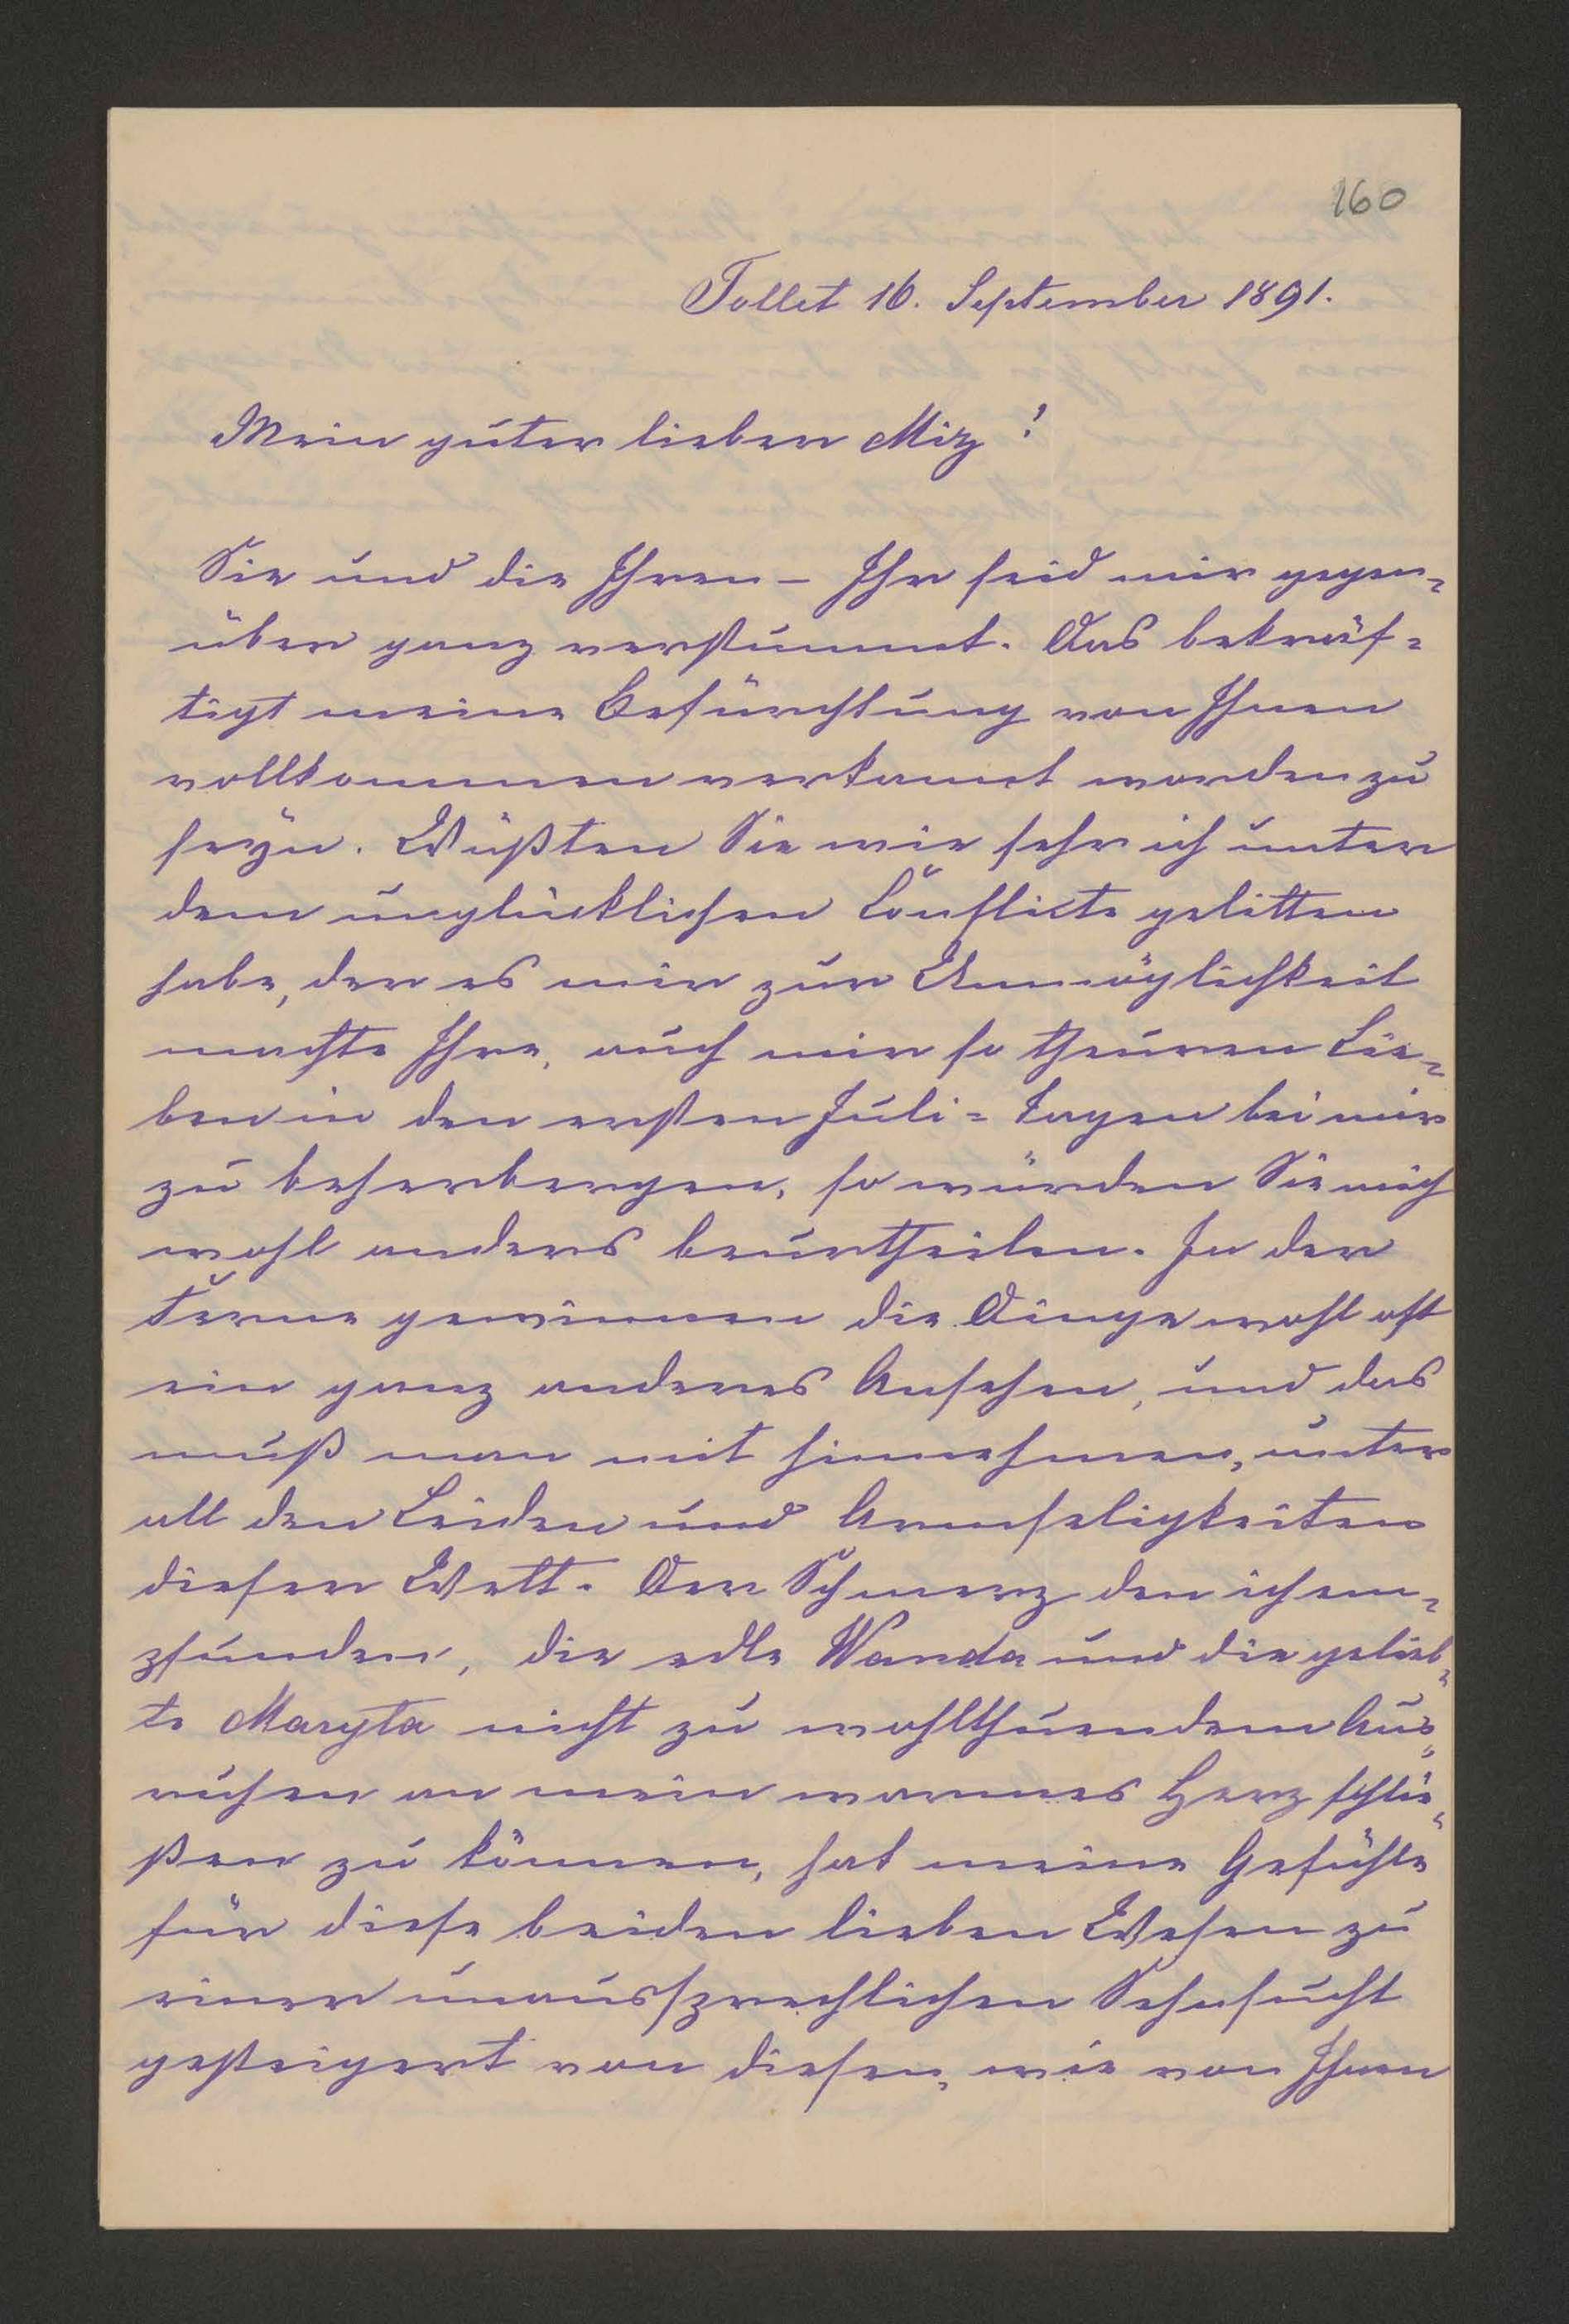 160
Tollet 16. September 1891.
Mein guter lieber Miz!
Sie und die Ihren – Ihr seid mir gegen-
über ganz verstummt. Das bekräf-
tigt meine Befürchtung von Ihnen
vollkommen verkannt worden zu
seyn. Wüßten Sie wie sehr ich unter
dem unglücklichen Conflicte gelitten
habe, der es mir zur Unmöglichkeit
machte Ihre, auch mir so theuren Lie-
ben in den ersten Juli-Tagen bei mir
zu beherbergen, so würden Sie mich
wohl anders beurtheilen. In der
Ferne gewinnen die Dinge wohl oft
ein ganz anderes Ansehen, und das
muß man mit hinnehmen, unter
all den Leiden und Armseligkeiten
dieser Welt. Der Schmerz den ich em-
pfunden, die edle Wanda und die gelieb-
te Maryta nicht zu wohlthuendem Aus-
ruhen an mein warmes Herz schlie-
ßen zu können, hat meine Gefühle
für diese beiden lieben Wesen zu
einer unaussprechlichen Sehnsucht
gesteigert von diesen, wie von Ihnen